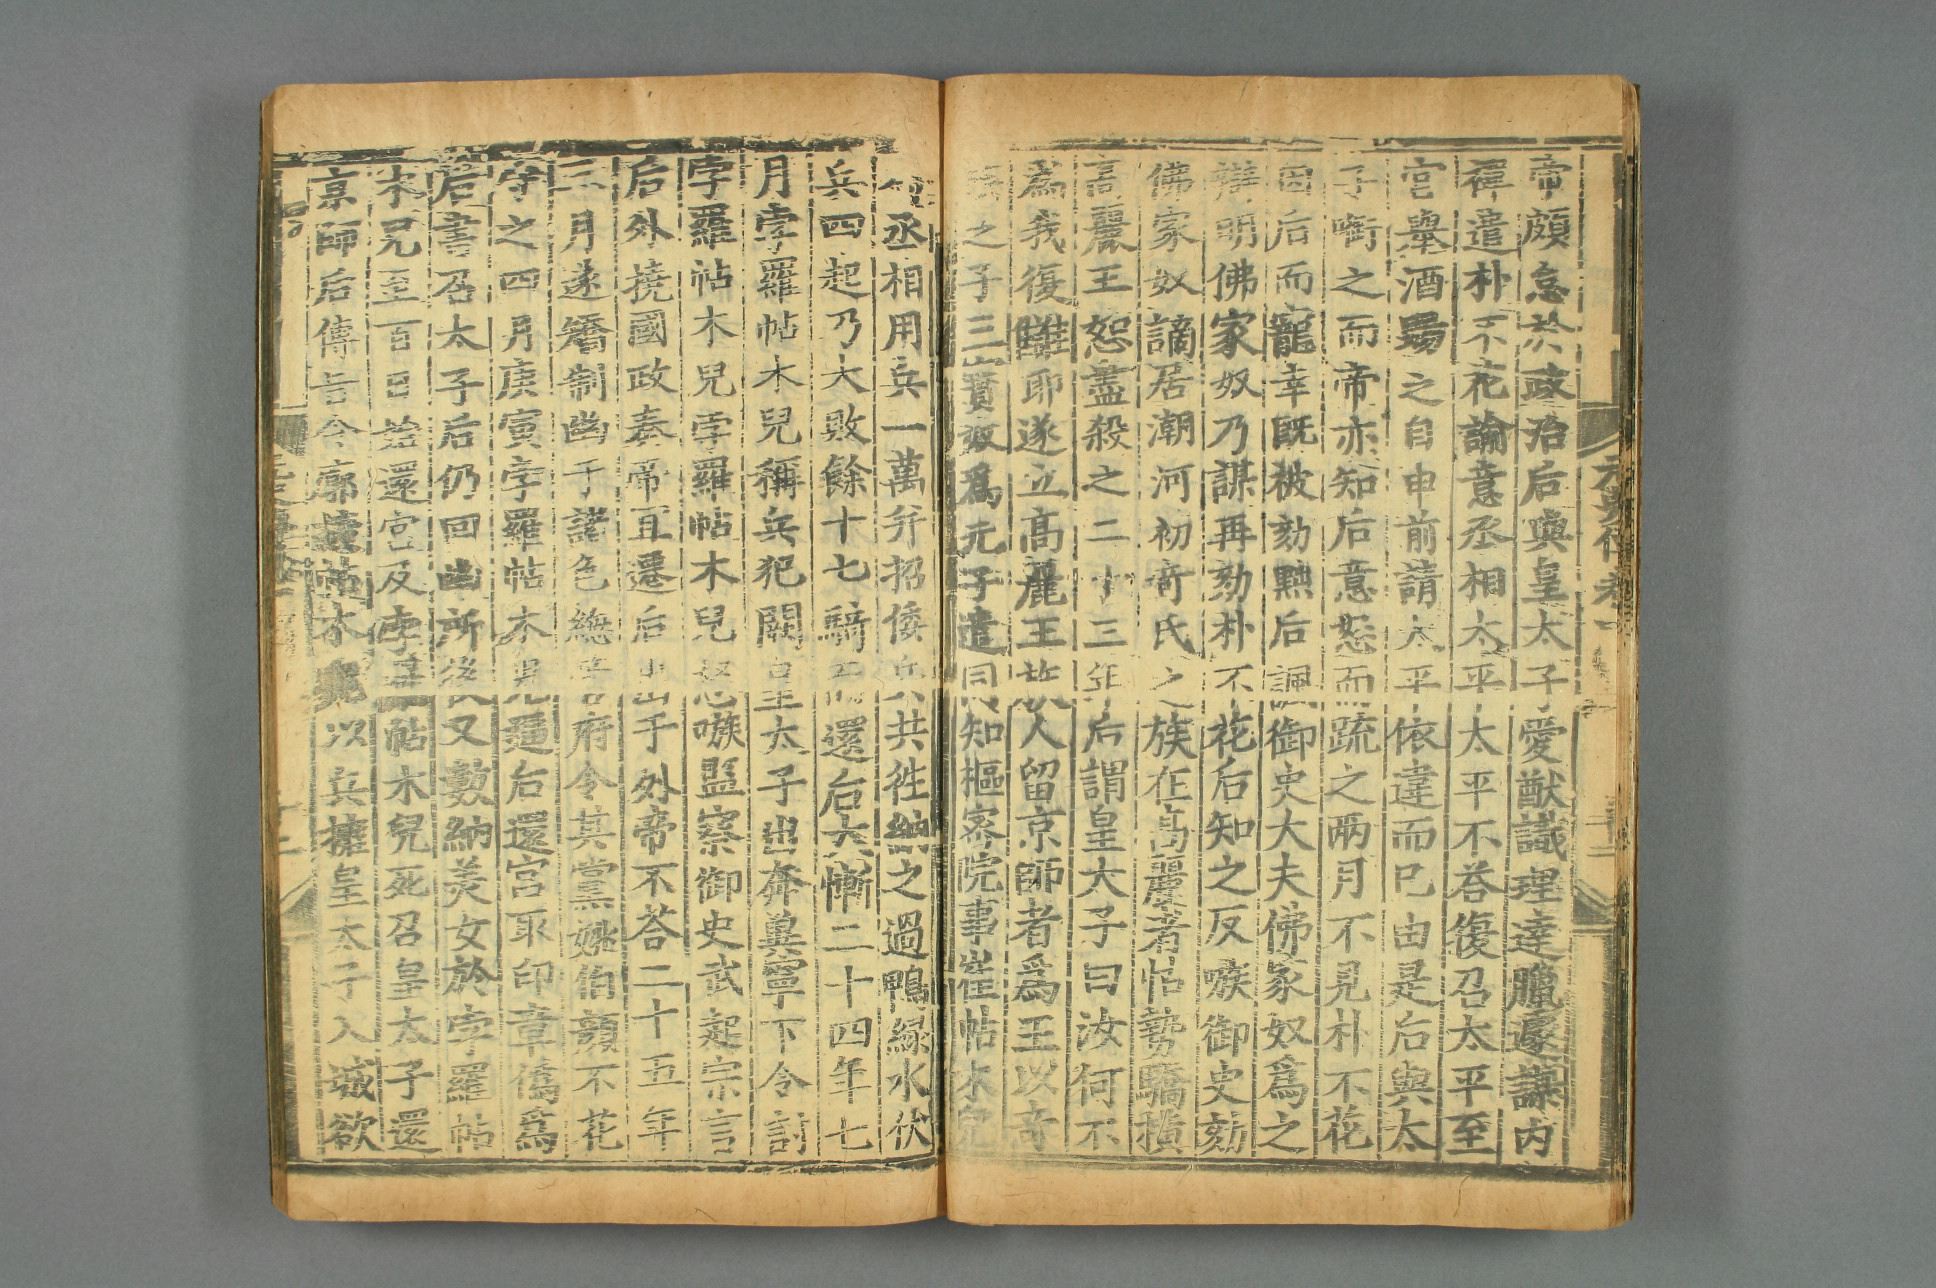 帝頗怠於政治后與皇太子愛猷識理達臘遽謀内
禪遣朴不花諭意丞相太平太平不荅復召太平至
宮舉酒賜之自申前請太平依違而已由是后與太
子銜之而帝亦知后意怒而疏之兩月不見朴不花
因后而寵幸既被劾黜后諷御史大夫佛家奴爲之
辯明佛家奴乃謀再劾朴不花后知之反嗾御史劾
佛家奴謫居潮河初竒氏之族在高麗者怙勢驕橫
高麗王怒盡殺之二十三年后謂皇太子曰汝何不
爲我復讎耶遂立高麗王族人留京師者爲王以竒
族之子三寳奴爲元子遣同知樞密院事崔帖木兒
爲丞相用兵一萬并招倭兵共徃納之過鴨緑水伏
兵四起乃大敗餘十七騎而還后大慚二十四年七
月孛羅帖木兒稱兵犯闕皇太子出奔冀寧下令討
孛羅帖木兒孛羅帖木兒怒嗾監察御史武起宗言
后外撓國政奏帝宜遷后出于外帝不荅二十五年
三月遂矯制幽于諸色總管府令其黨姚伯顔不花
守之四月庚寅孛羅帖木兒逼后還宮取印章僞爲
后書召太子后仍回幽所後又數納美女於孛羅帖
木兒至百日始還宮及孛羅帖木兒死召皇太子還
京師后傳㫖令廓擴帖木兒以兵擁皇太子入城欲